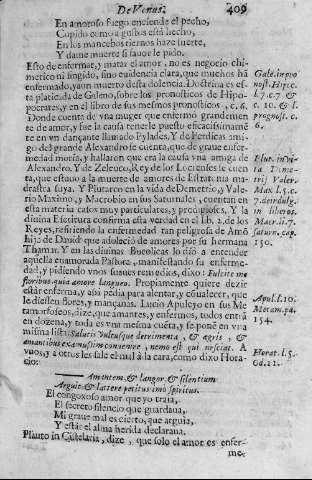 De Venus. 409
En amoroso fuego enciende el pecho,
Cupido como a gustos està hecho,
En los mancebos tiernos haze suerte,
Y dame muerte si fauor le pido.
Esto de enfermar, y matar el amor, no es negocio chi-
merico ni fingido, sino euidencia clara, que muchos hã
enfermado, y aun muerto desta dolencia. Doctrina es es-
ta platicada de Galeno, sobre los pronosticos de Hipo-
pocrates, y en el libro de sus mesmos pronosticos, c. 6.
Donde cuenta de vna muger que enfermò grandemen
te de amor, y fue la causa tenerle puesto eficacissimamẽ
te en vn dançante llamado Pylades. Y de Perdicas ami-
go del grande Alexandro se cuenta, que de graue enfer-
medad moria, y hallaron que era la causa vna amiga de
Alexandro. Y de Zeleuco, Rey de los Locrenses se cuen
ta, que estaua a la muerte de amores de Estratonica ma-
drastra suya. Y Plutarco en la vida de Demetrio, y Vale-
rio Maximo, y Macrobio en sus Saturnales, cuentan en
esta materia casos muy particulares, y prodigiosos. Y la
diuina Escritura confirma esta verdad en el Lib. 2. de los
Reyes, refiriendo la enfermedad tan peligrosa de Amõ
hijo de Dauid que adoleciò de amores por su hermana
Thamar. Y en las diuinas Bucolicas lo diò a entender
aquella enamorada Pastora, manifestando su enferme-
dad, y pidiendo vnos suaues remedios, dixo: Fulcite me
floribus quia amore langueo. Propiamente quiere dezir
estàr enferma, y assi pedia para alentar, y cõualecer, que
le diessen flores, y mançanas. Lucio Apuleyo en sus Me
tamorfoseos, dize, que amantes, y enfermos, todos entrã
en dozena, y toda es vna mesma cuẽta, y se ponẽ en vna
misma lista:
amantibus examussim conuenire, nemo est qui nesciat. A
vnos, y a otros les sale el mal à la cara, como dixo Hora-
cio:
Amantem, & langor, & silentium
Arguit, & latere petitus imo spiritus.
El congoxoso amor que yo traìa,
El secreto silencio que guardaua,
Mi graue mal es cierto, que arguìa,
Y estàr el alma herida declaraua.
Plauto in Cistelaria, dize, que solo el amor es enfer-
me-
Gale. in pro
nost. Hip. c.
l. 7. c. 7 &
c. 10. & l.
prognost. c.
6.
Plut. in vi-
ta Deme-
trij Valer.
Max. l. 5. c.
7.
Macr. li. 7.
saturn. cap.
150.
Apul. l. 10.
Metam. pa.
154.
Horat. l. 5.
Od. 11.